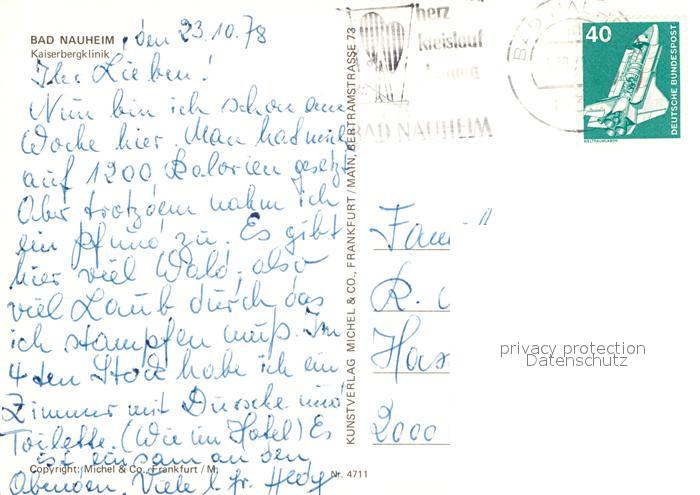 BAD NAUHEIM
Kaiserbergklinik
, den 23.10.78
Ihr Lieben!
Nun bin ich schon am
Woche hier. Man hat mich
auf 1200 Kalorien gesetzt
Aber trotzdem nahm ich
ein Pfund zu. Es gibt
hier viel Wald, also
viel Laub durch das
ich stampfen muß. Im
4ten Stock habe ich ein
Zimmer mit Dusche und
Toilette. (Wie im Hotel) Es
ist einsam an den
Abenden. Viele l. Gr. Hedy
Copyright: Michel & Co., Frankfurt / M.
Nr. 4711
KUNSTVERLAG MICHEL & CO., FRANKFURT / MAIN, BERTRAMSTRASSE 73
herz
kreislauf
BAD NAUHEIM
BAD NAU
40
DEUTSCHE BUNDESPOST
WELTRAUMLABOR
Fam
R.
Has
2000
privacy protection
Datenschutz